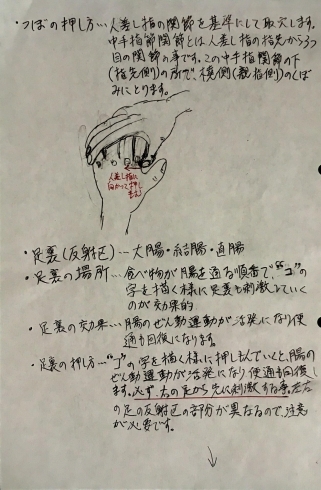 ・つぼの押し方…人差し指の関節を基準にして取穴します。
中手指節関節とは人差し指の指先から3つ
目の関節の事です。この中手指関節の下
(指先側)の所で横側(親指側)のくぼ
みにとります。
人差し指に
向かって押し
ます
・足裏(反射区)…大腸・結腸・直腸
・足裏の場所…食べ物が腸を通る順番で、"コ"の
字を描く様に足裏も刺激していく
のが効果的
・足裏の効果…腸のぜん動運動が活発になり便
通も回復になります。
・足裏の押し方…"コ"の字を描く様に押しもんでいくと、腸の
ぜん動運動が活発になり便通も回復し
ます。必ず、右の足から先に刺激する事。左右
の足の反射区の部分が異なるので、注意
が必要です。
↓